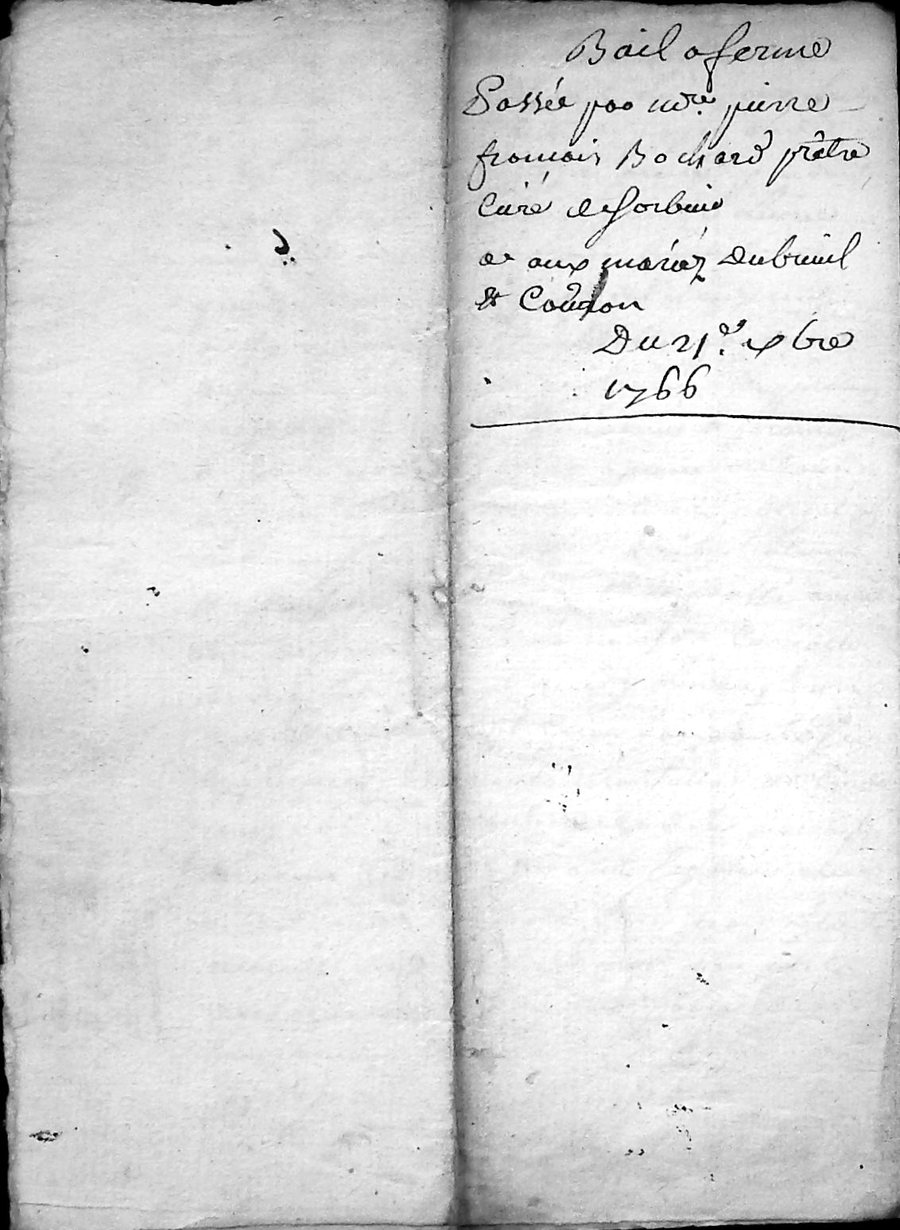 Bail a ferme
Passée par mre pierre
francois Bochard prêtre
Curé de Sorbier
aux mariéz Dubreuil
& Coudron
Du 21e xbre
1766